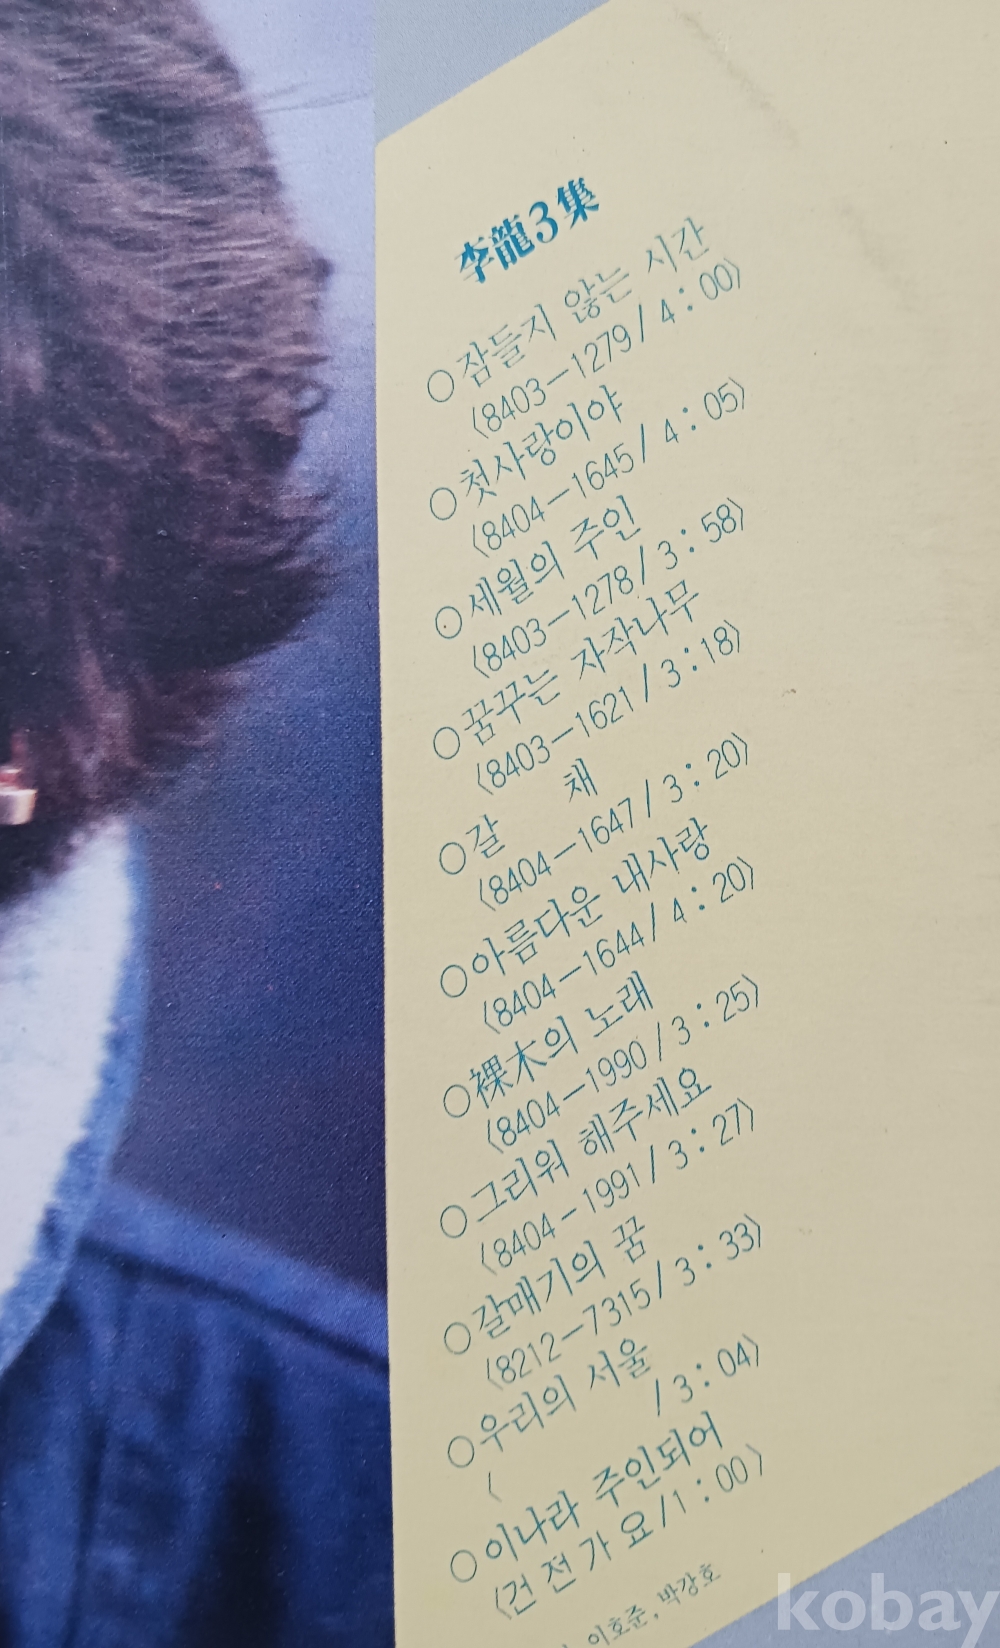 李龍3集
○잠들지 않는 시간
〈8403-1279/4:00〉
○첫사랑이야
〈8404-1645/4:05〉
○세월의 주인
〈8403-1278/3:58〉
○꿈꾸는 자작나무
〈8403-1621/3:18〉
○갈 채
〈8404-1647/3:20〉
○아름다운 내사랑
〈8404-1644/4:20〉
○裸木의 노래
〈8404-1990/3:25〉
○그리워 해주세요
〈8404-1991/3:27〉
○갈매기의 꿈
〈8212-7315/3:33〉
○우리의 서울
〈 /3:04〉
○이나라 주인되어
〈건전가요/1:00〉
이호준, 박강호
kobay